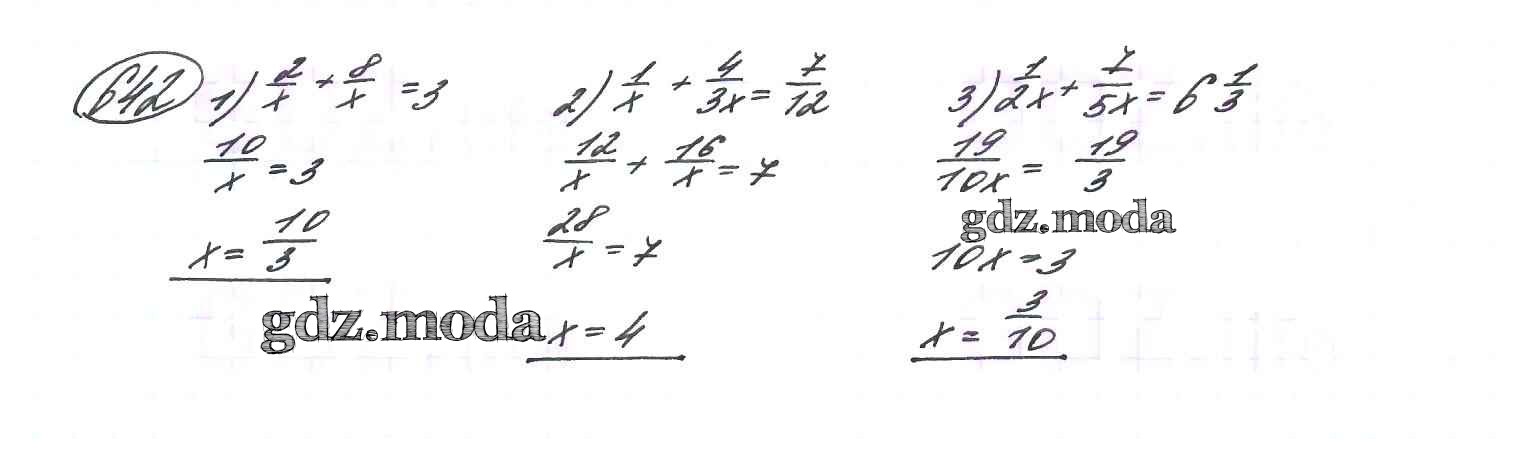 642 1) 2/x + 8/x = 3
10/x = 3
x = 10/3
2) 1/x + 4/3x = 7/12
12/x + 16/x = 7
28/x = 7
x = 4
3) 1/2x + 7/5x = 6 1/3
19/10x = 19/3
10x = 3
x = 3/10
gdz.moda
gdz.moda